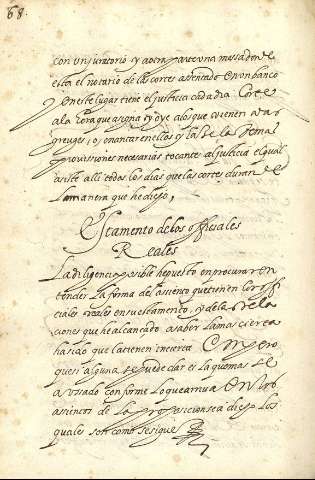 68.
con un juratorio y a otra parte una messa don de
esta el notario de las cortes asentado en un banco
y en este lugar tiene el justicia cada dia Cortes
a la hora que asigna y oye a los que vienen a dar
greuges, o, en antar en ellos y las de las demas
provissiones necesarias tocantes al justicia el qual
asiste alli todos los dias que las cortes duran de
la manera que he dicho,
Estamento de los officiales
Reales
La diligencia posible he puesto en procurar en
tender la forma del asiento que tienen los offi
ciales reales en su estamento, y de las Rela
ciones que he alcançado a saber la mas cierta
ha sido que la tienen incierta Empero
que si alguna se puede dar es la que mas se
a usado conforme lo que arriva en los
asientos de la proposicion sea dicho los
quales son como se sigue